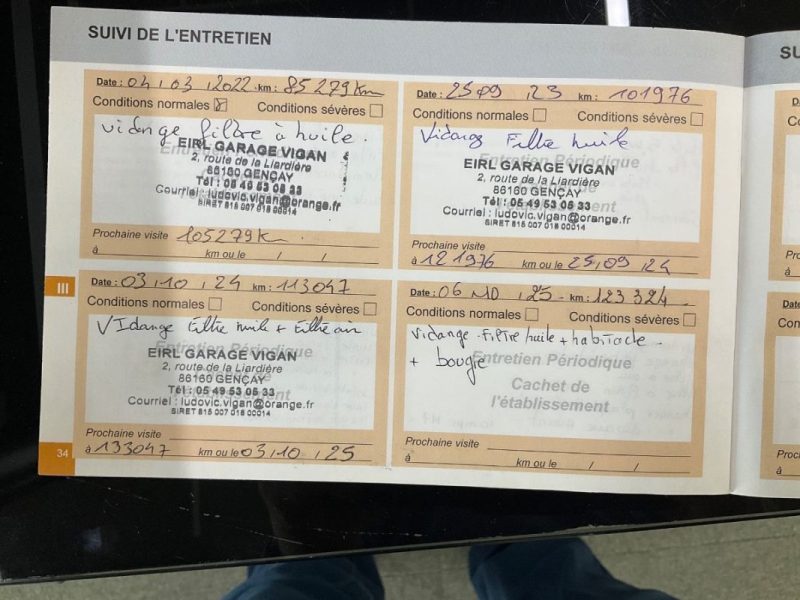 SUIVI DE L'ENTRETIEN
Date : 04 / 03 / 2022 km : 85279 km
Conditions normales Conditions sévères
vidange filtre à huile.
EIRL GARAGE VIGAN
2, route de la Liardière
86160 GENÇAY
Tél : 05 49 53 05 33
Courriel : ludovic.vigan@orange.fr
SIRET 815 007 018 00014
Prochaine visite 105279 km
à km ou le / /
Date : 25 09 / 23 km : 101976
Conditions normales Conditions sévères
Vidange Filtre huile
Entretien Périodique
EIRL GARAGE VIGAN
2, route de la Liardière
86160 GENÇAY
Tél : 05 49 53 05 33
Courriel : ludovic.vigan@orange.fr
SIRET 815 007 018 00014
Prochaine visite
à 121976 km ou le 25 / 09 / 24
III
Date : 03 / 10 / 24 km : 113047
Conditions normales Conditions sévères
VIdange Filtre huile + Filtre air
Entretien Périodique
EIRL GARAGE VIGAN
2, route de la Liardière
86160 GENÇAY
Tél : 05 49 53 05 33
Courriel : ludovic.vigan@orange.fr
SIRET 815 007 018 00014
Prochaine visite
à 133047 km ou le 03 / 10 / 25
Date : 06 / 10 / 25 km : 123324
Conditions normales Conditions sévères
Vidange - Filtre huile + habitacle
+ bougie
Entretien Périodique
Cachet de
l'établissement
Prochaine visite
à km ou le / /
34
SU